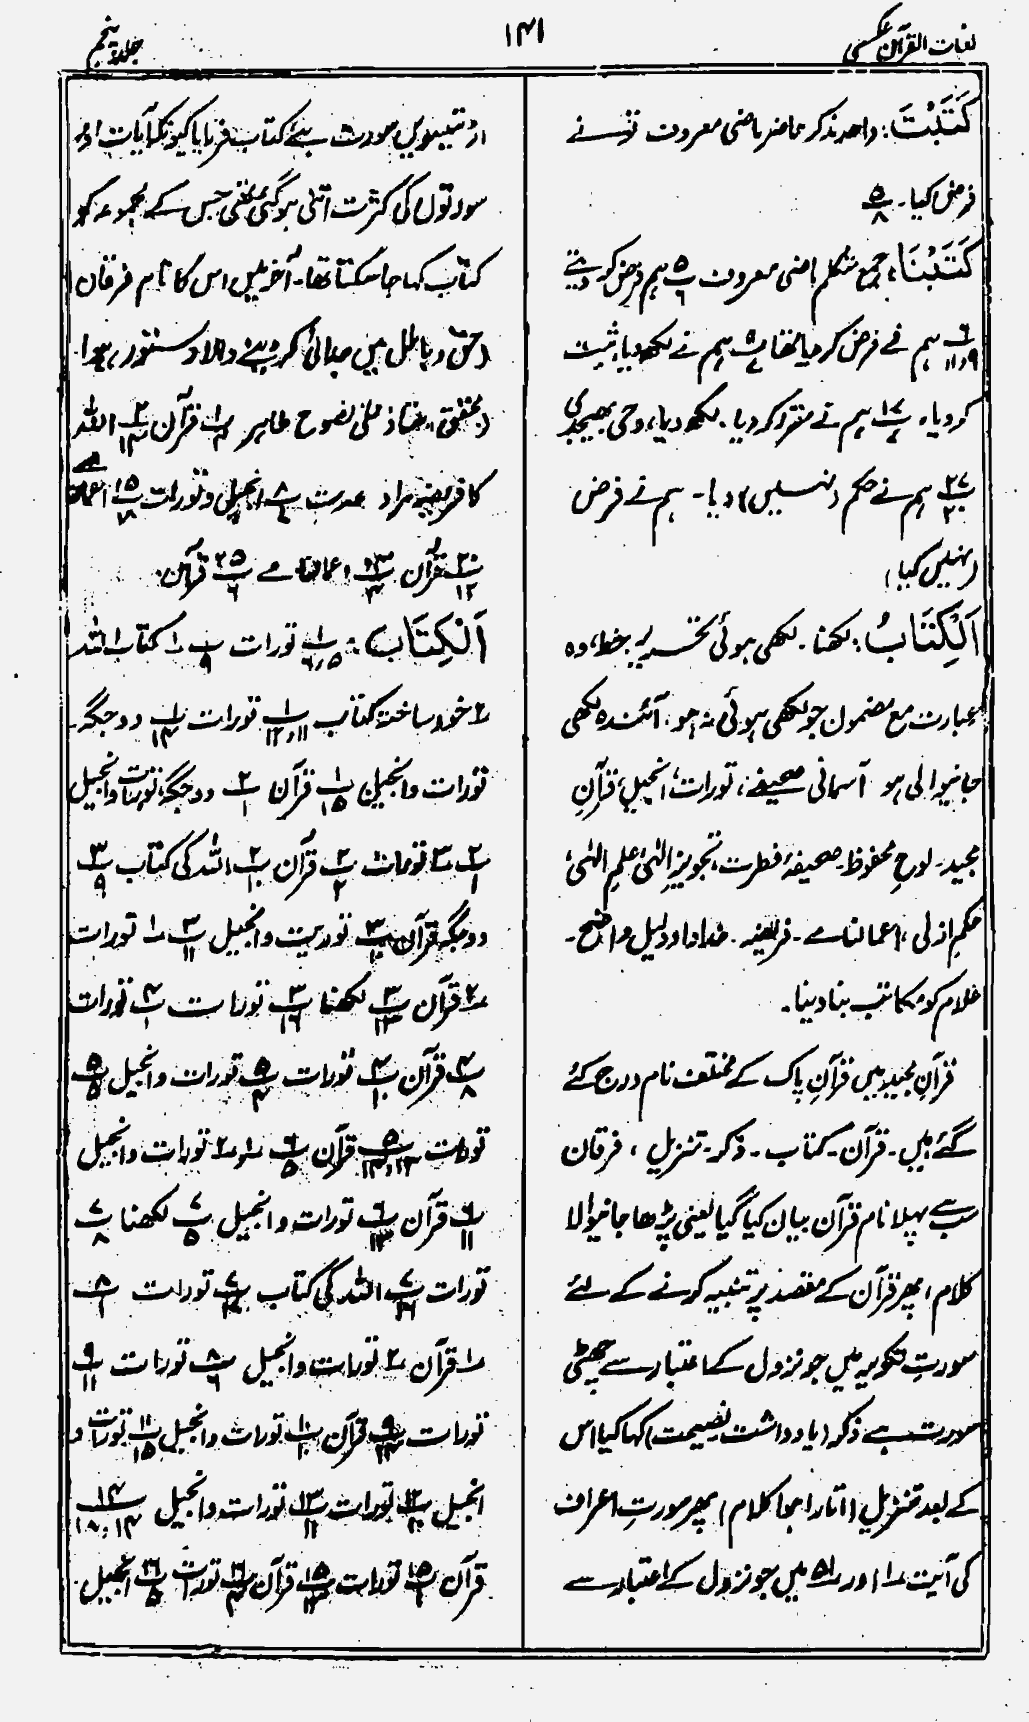 لغات القرآن عکسی
۱۴۱
جلد پنجم
کَتَبْتَ: واحد مذکر حاضر ماضی معروف تو نے
فرض کیا۔ ۵/۸
کَتَبْنَا، جمع متکلم ماضی معروف ۵/۶ ہم فرض کر دیتے
۶/۹،۱۱ ہم نے فرض کر دیا تھا ہم نے لکھ دیا، ثبت
کر دیا، ۱۷/۷ ہم نے مقرر کر دیا۔ لکھ دیا، وحی بھیجدی
۲۷/۲۰ ہم نے حکم (نہیں) دیا۔ ہم نے فرض
(نہیں کیا)
اَلْکِتَابُ: لکھنا۔ لکھی ہوئی تحریر، خط، وہ
عبارت مع مضمون جو لکھی ہوئی نہ ہو، آئندہ لکھی
جانیوالی ہو آسمانی صحیفے، تورات، انجیل، قرآنِ
مجید۔ لوحِ محفوظ۔ صحیفۂ فطرت، تجویزِ الٰہی، علمِ الٰہی،
حکمِ ازلی، اعمالنامے۔ فریضہ۔ خداداد دلیل واضح۔
غلام کو مکاتب بنا دینا۔
قرآنِ مجید میں قرآنِ پاک کے مختلف نام درج کئے
گئے ہیں۔ قرآن۔ کتاب۔ ذکر۔ تنزیل، فرقان
سب سے پہلا نام قرآن بیان کیا گیا یعنی پڑھا جانیوالا
کلام، پھر قرآن کے مقصد پر تنبیہ کرنے کے لئے
سورتِ تکویر میں جو نزول کے اعتبار سے چھٹی
سورت ہے ذکر (یادداشت نصیحت) کہا گیا اس
کے بعد تنزیل (اتارا ہوا کلام) پھر سورتِ اعراف
کی آیت ۱ اور ۵۱ میں جو نزول کے اعتبار سے
سورت ہے کتاب فرمایا کیونکہ آیات اور
سورتوں کی کثرت اتنی ہوگئی تھی جس کے مجموعہ کو
کتاب کہا جا سکتا تھا۔ آخر میں اس کا نام فرقان
(حق و باطل میں جدائی کر دینے والا دستور) ہوا
طاہر ۱/۱ قرآن ۲/۱۴ اللہ
کا فریضہ مراد عدت ۸/۷ انجیل و تورات ۱۵/۸
۲۰/۱۲ قرآن ۲۳/۴ اعمالنامے ۲۵/۶ قرآن۔
اَلْکِتَاب: ۱/۶،۵ تورات ۱/۹ کتاب اللہ
۲ خود ساختہ کتاب ۱/۱۲،۱۱ تورات ۱/۱۴ دو جگہ۔
تورات و انجیل ۱/۱۵ قرآن ۲/۱ دو جگہ تورات و انجیل
۲/۱ تورات ۲/۲ قرآن ۲/۱۰ اللہ کی کتاب ۳/۹
دو جگہ قرآن ۳/۱۰ توریت و انجیل ۳/۱۱ ۱ تورات
۲ قرآن ۳/۱۳ لکھنا ۳/۱۶ تورات ۴/۱ تورات
۴/۸ قرآن ۴/۱۰ تورات ۵/۴ تورات و انجیل ۵/۵
تورات ۵/۱۴،۱۳ قرآن ۶/۵ ۱، ۲ تورات و انجیل
۶/۱۱ قرآن ۶/۱۳ تورات و انجیل ۷/۵ لکھنا ۷/۸
تورات ۷/۱۱ اللہ کی کتاب تورات ۸/۱
۱ قرآن ۲ تورات و انجیل ۸/۶ تورات ۹/۱۱
تورات ۹/۱۲ قرآن ۱۱/۱ تورات و انجیل ۱۱/۱۵ تورات و
انجیل ۱۲/۲ تورات ۱۳/۱۱ تورات و انجیل ۱۴/۱۸،۱۴
قرآن ۱۵/۱ تورات ۱۵/۱۳ قرآن تورات ۱۶/۵ انجیل